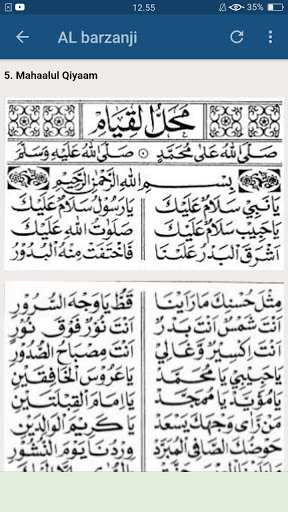 12.55
35%
AL barzanji
5. Mahaalul Qiyaam
مَحَلُّ الْقِيَامِ
صَلَّى اللهُ عَلَى مُحَمَّدٍ ۞ صَلَّى اللهُ عَلَيْهِ وَسَلَّمَ
بِسْمِ اللهِ الرَّحْمٰنِ الرَّحِيْمِ
يَا نَبِي سَلَامٌ عَلَيْكَ يَا رَسُوْلُ سَلَامٌ عَلَيْكَ
يَا حَبِيْبُ سَلَامٌ عَلَيْكَ صَلَوَاتُ اللهِ عَلَيْكَ
اَشْرَقَ الْبَدْرُ عَلَيْنَا فَاخْتَفَتْ مِنْهُ الْبُدُوْرُ
مِثْلَ حُسْنِكَ مَا رَاَيْنَا قَطُّ يَا وَجْهَ السُّرُوْرِ
اَنْتَ شَمْسٌ اَنْتَ بَدْرٌ اَنْتَ نُوْرٌ فَوْقَ نُوْرٍ
اَنْتَ اِكْسِيْرٌ وَغَالِي اَنْتَ مِصْبَاحُ الصُّدُوْرِ
يَا حَبِيْبِيْ يَا مُحَمَّدُ يَا عَرُوْسَ الْخَافِقَيْنِ
يَا مُؤَيَّدُ يَا مُمَجَّدُ يَا اِمَامَ الْقِبْلَتَيْنِ
مَنْ رَاٰى وَجْهَكَ يَسْعَدُ يَا كَرِيْمَ الْوَالِدَيْنِ
حَوْضُكَ الصَّافِى الْمُبَرَّدُ وِرْدُنَا يَوْمَ النُّشُوْرِ